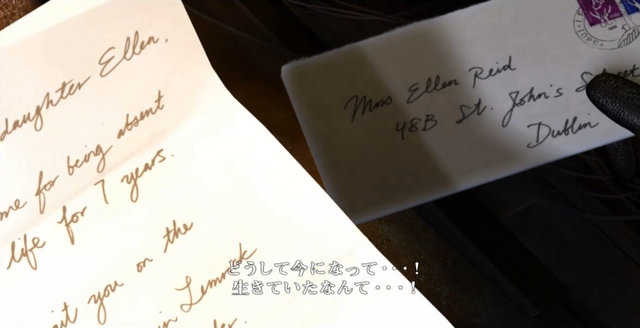 daughter Ellen,
me for being absent
life for 7 years.
it you on the
in Lemrock
Miss Ellen Reid
48B St. John's Street
Dublin
どうして今になって・・・!
生きていたなんて・・・!